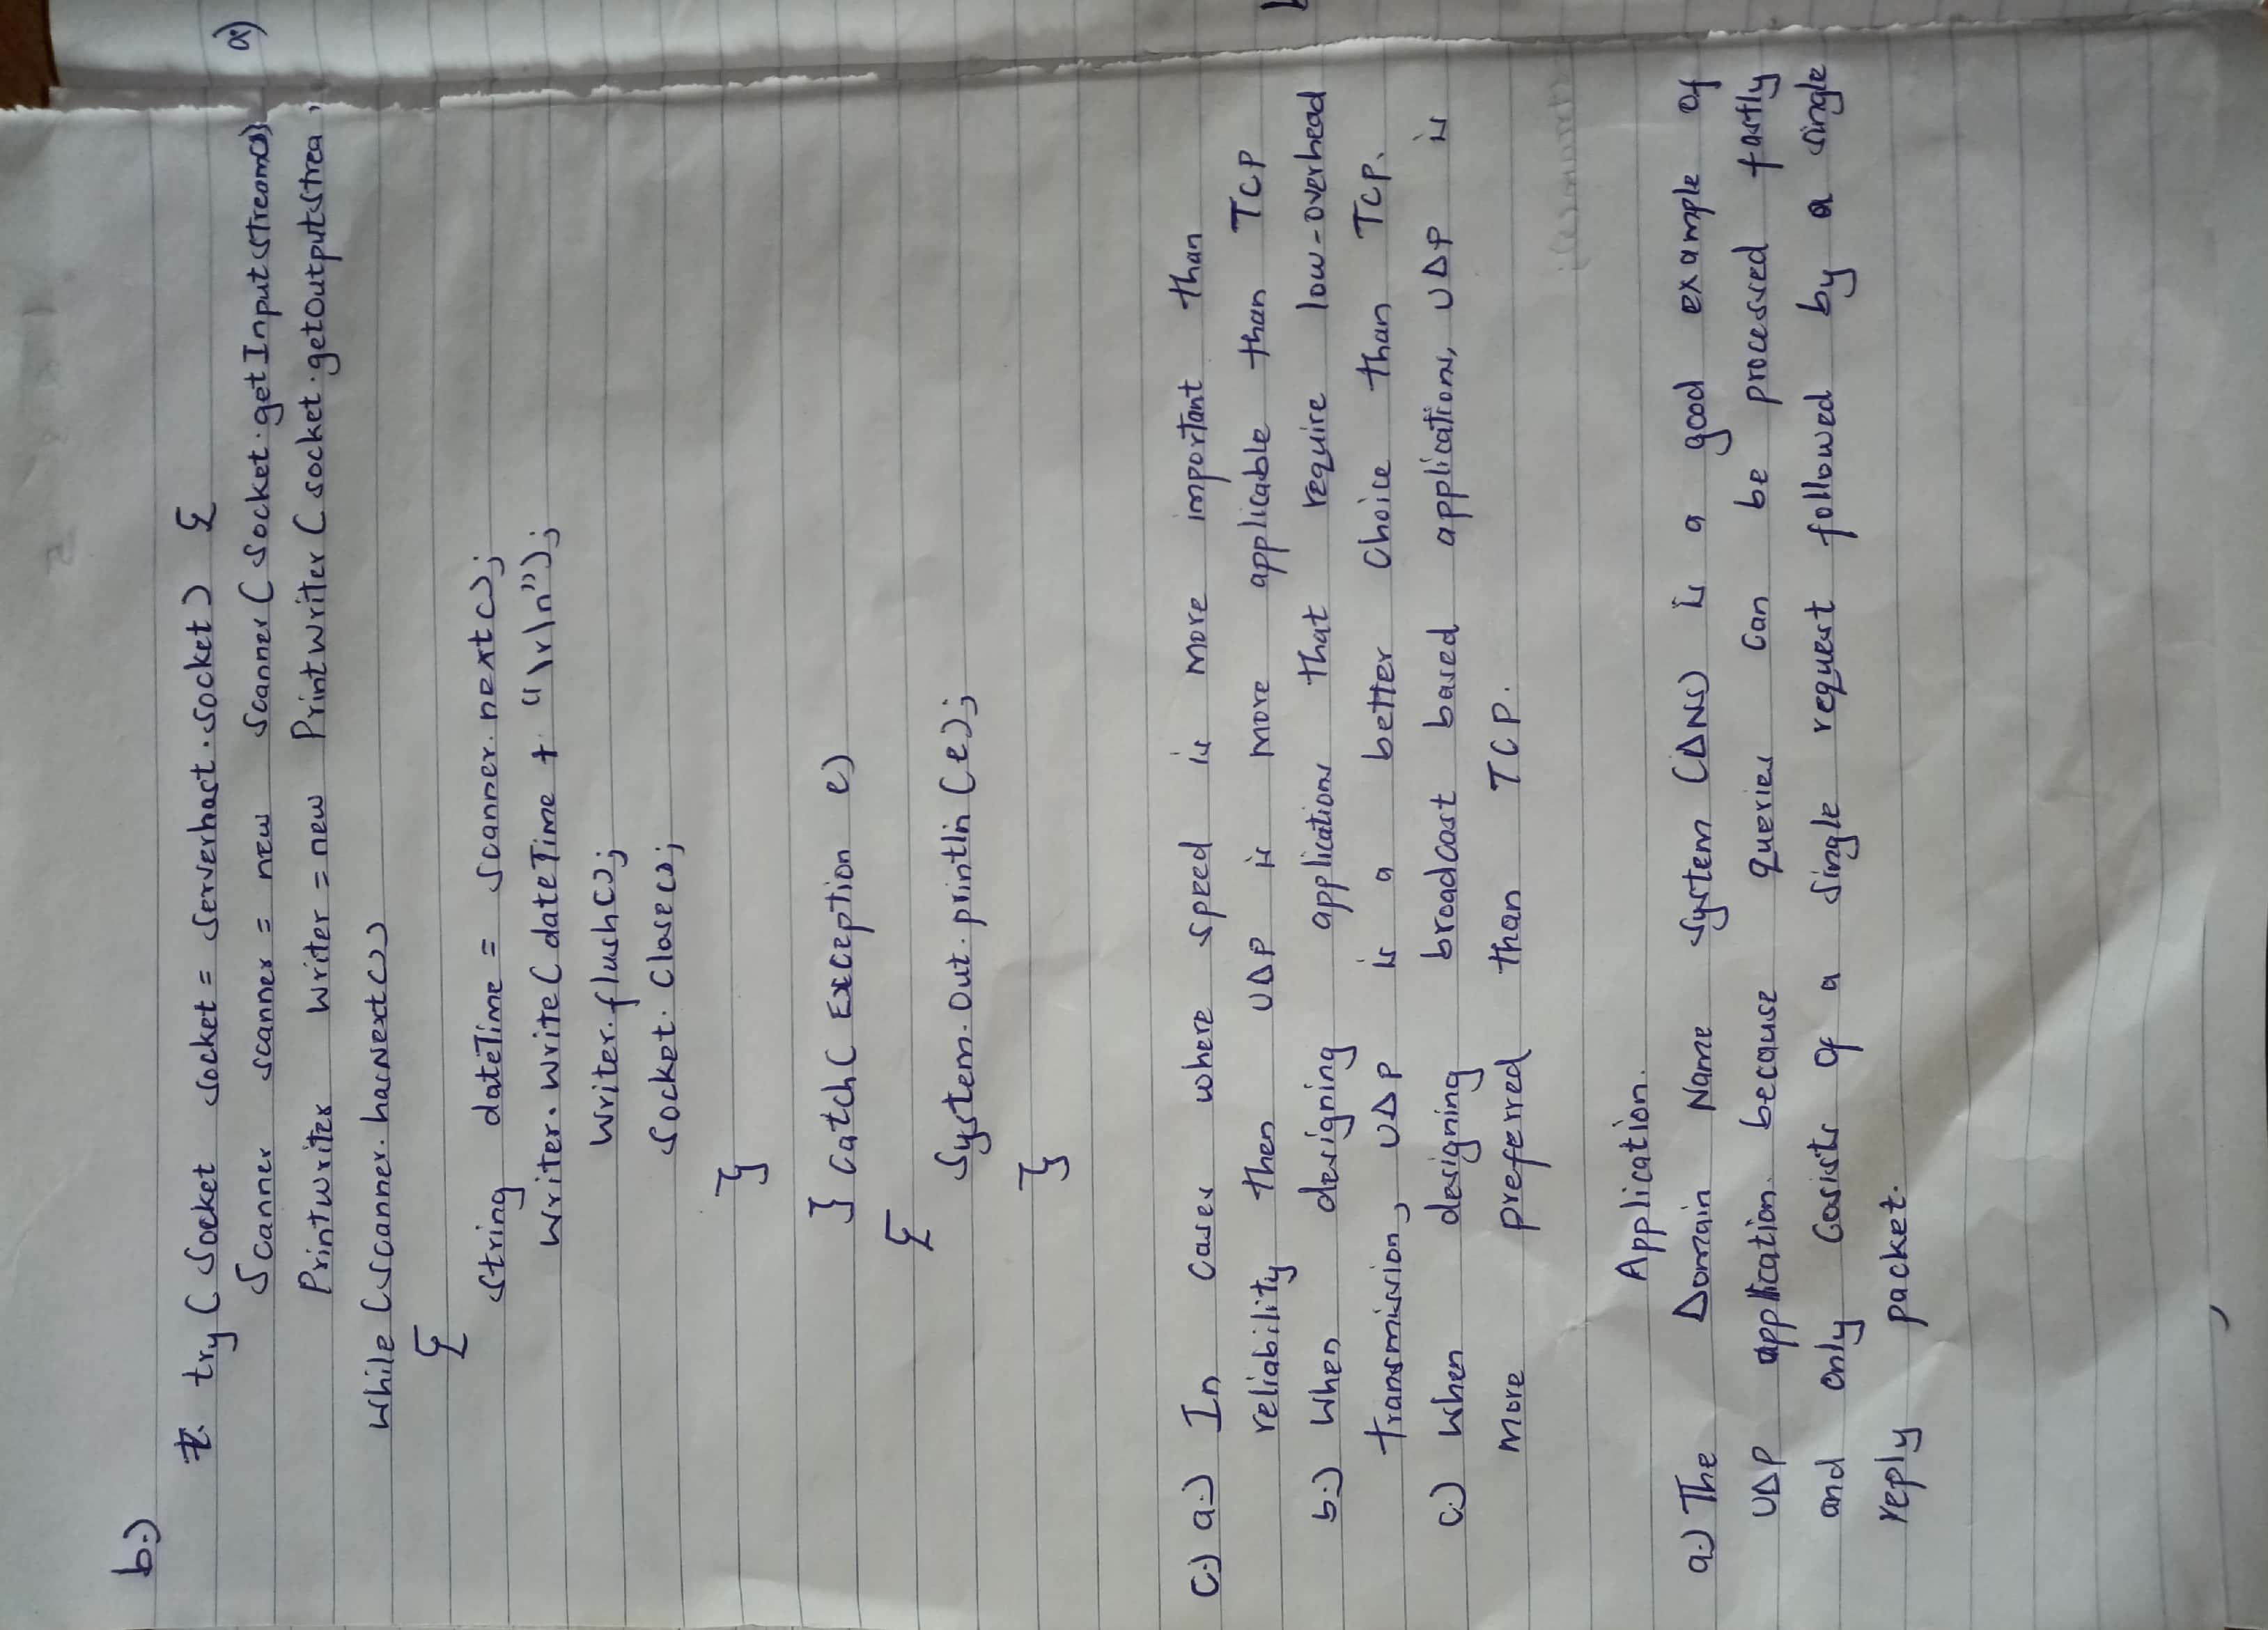 b.)
try ( Socket socket = serverhost.socket) {
Scanner scanner = new Scanner ( socket.getInputStream())
Printwriter writer = new Printwriter ( socket.getOutputstrea
While (scanner.hasNext())
{
String dateTime = scanner.next();
writer.write ( dateTime + "\r\n");
writer.flush();
Socket.close();
}
} catch ( Exception e)
{
System.out.println (e);
}
c.) a.) In cases where speed is more important than
reliability then UDP is more applicable than TCP
b.) When designing applications that require low-overhead
transmission, UDP is a better choice than TCP.
c.) When designing broadcast based applications, UDP is
more preferred than TCP.
Application.
a.) The Domain Name System (DNS) is a good example of
UDP application. because queries can be processed fastly
and only cosists of a single request followed by a single
reply packet.
a)